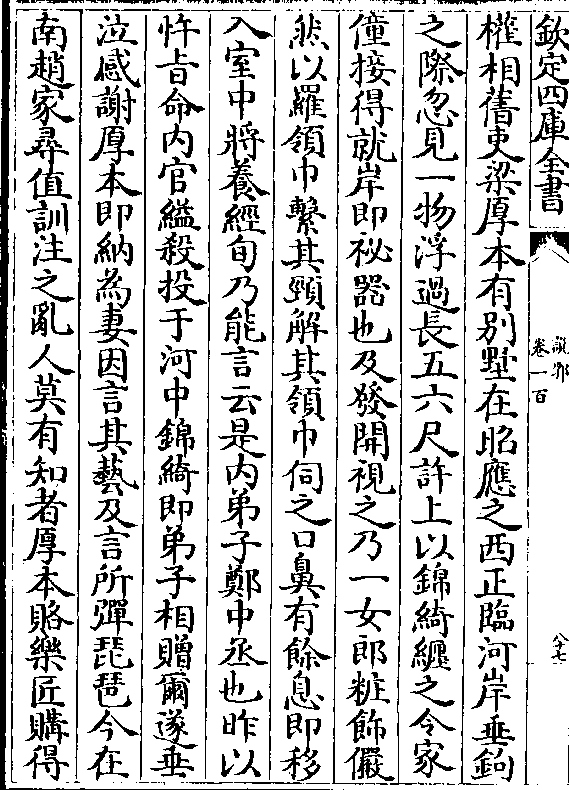 欽定四庫全書
說郛
卷一百
八十七
權相舊吏梁厚本有别墅在昭應之西正臨河岸垂鉤
之際忽見一物浮過長五六尺許上以錦綺纏之令家
僮接得就岸即祕器也及發開視之乃一女郎粧飾儼
然以羅領巾繫其頸解其領巾伺之口鼻有餘息即移
入室中將養經旬乃能言云是内弟子鄭中丞也昨以
忤㫖命内官縊殺投于河中錦綺即弟子相贈爾遂垂
泣感謝厚本即納為妻因言其藝及言所彈琵琶今在
南趙家尋值訓注之亂人莫有知者厚本賂樂匠購得